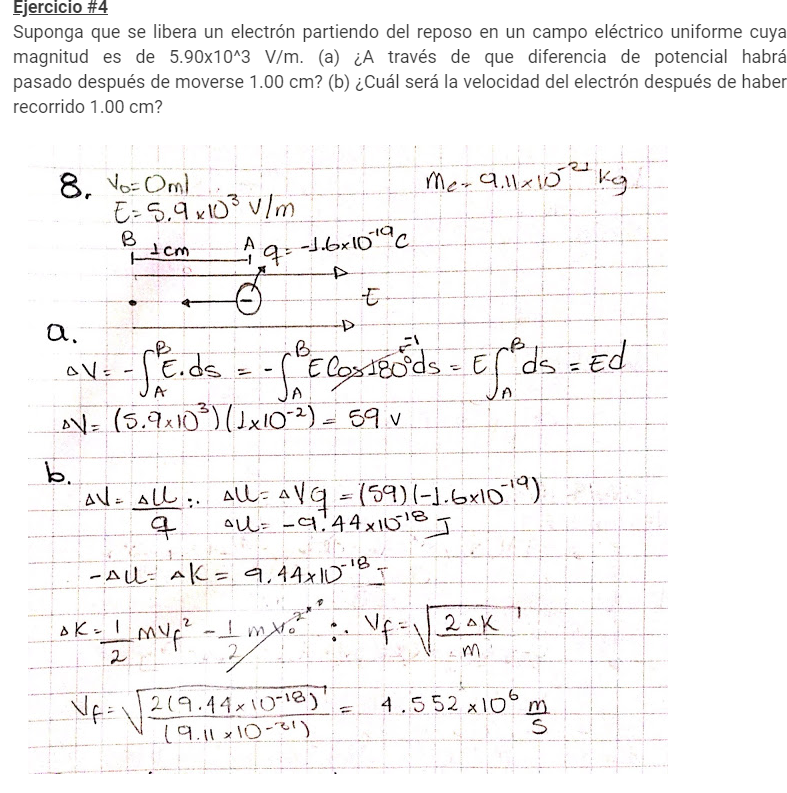 Ejercicio #4
Suponga que se libera un electrón partiendo del reposo en un campo eléctrico uniforme cuya
magnitud es de 5.90x10^3 V/m. (a) ¿A través de que diferencia de potencial habrá
pasado después de moverse 1.00 cm? (b) ¿Cuál será la velocidad del electrón después de haber
recorrido 1.00 cm?
8. V₀=0m/ Me= 9.11x10⁻³¹ kg
E= 5.9x10³ V/m
B 1cm A q= -1.6x10⁻¹⁹C
− E
a.
ΔV= -∫ₐᴮ E.ds = -∫ₐᴮ E Cos180° ⁻¹ ds = E∫ₐᴮ ds = Ed
ΔV= (5.9x10³)(1x10⁻²) = 59 v
b.
ΔV= ΔU/q ∴ ΔU= ΔVq = (59)(-1.6x10⁻¹⁹)
ΔU= -9.44x10⁻¹⁸ J
-ΔU= ΔK= 9.44x10⁻¹⁸ J
ΔK= 1/2 mVf² - 1/2 mV₀² ∴ Vf= √(2ΔK/m)
Vf= √(2(9.44x10⁻¹⁸)/(9.11x10⁻³¹)) = 4.552x10⁶ m/s